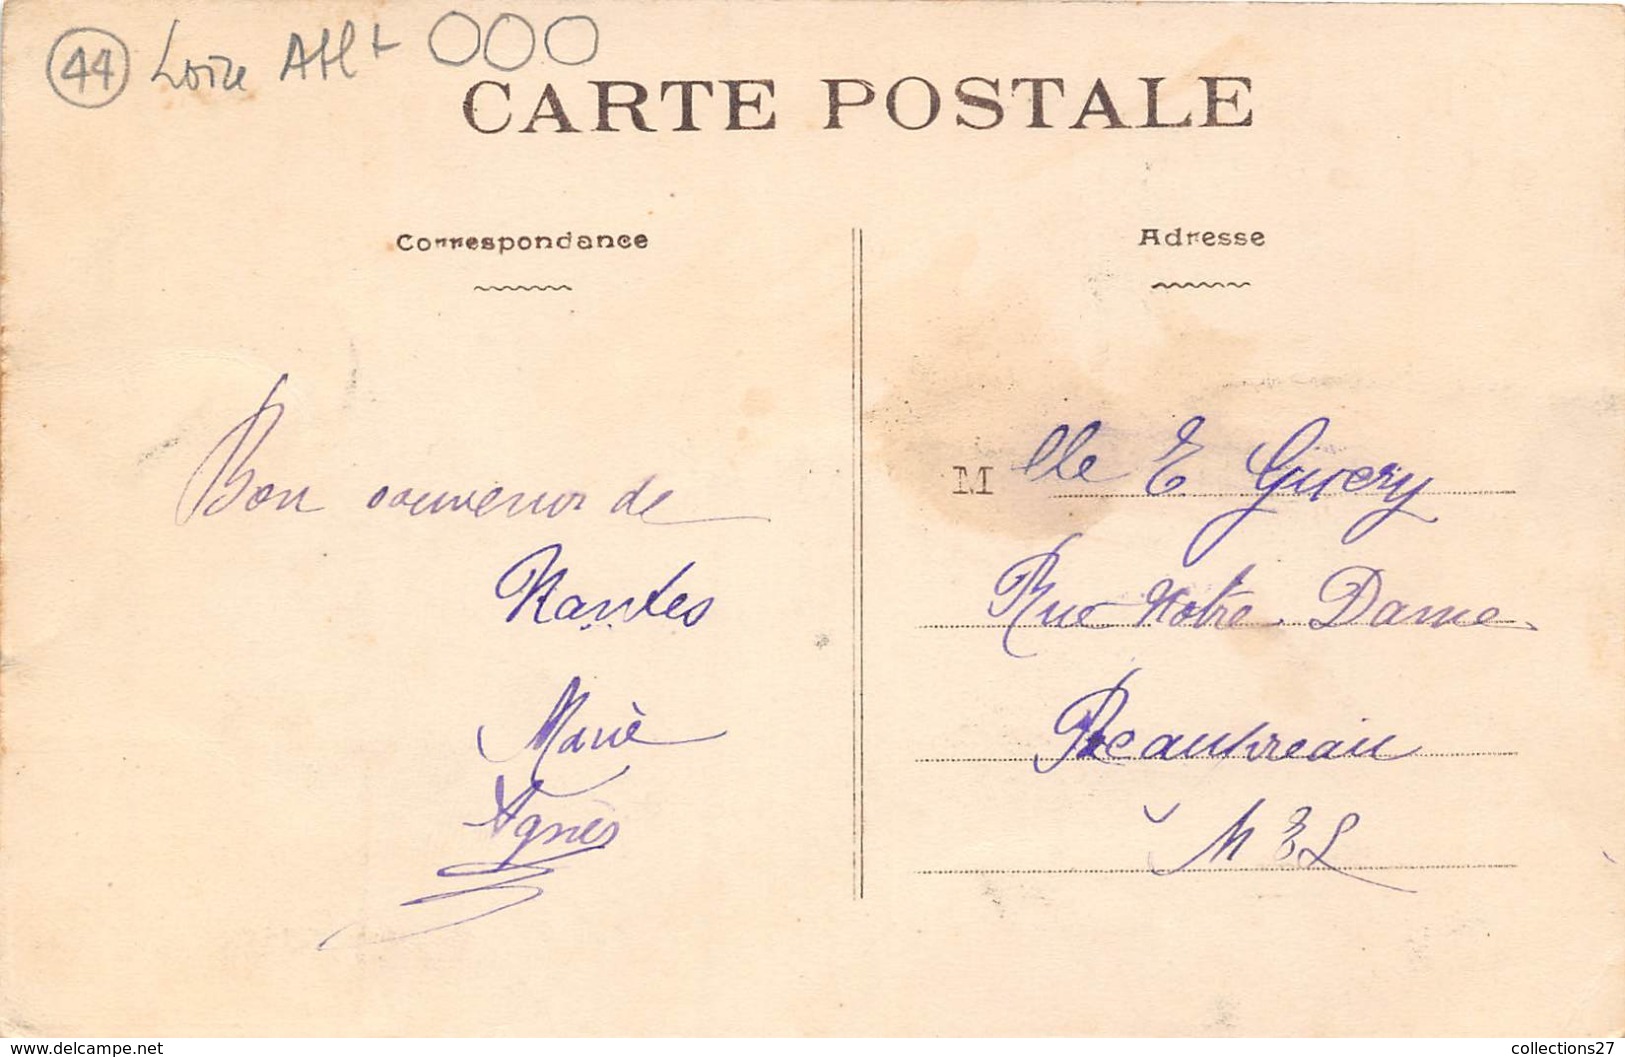 44 Loire Atlt
CARTE POSTALE
Correspondance
Bon souvenir de
Nantes
Marie
Agnès
Adresse
Mlle E Givery
Rue Notre Dame
Beaupreau
M & L
www.delcampe.net
collections27